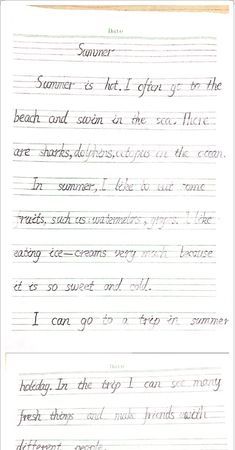 Date
Summer
Summer is hot. I often go to the
beach and swim in the sea. There
are sharks, dolphins, octopus in the ocean.
In summer, I like to eat some
fruits, such us watermelors, grapes. I like
eating ice-creams very much because
it is so sweet and cold.
I can go to a trip in summer
Date
holeday. In the trip I can see many
fresh things and make friends with
different people.